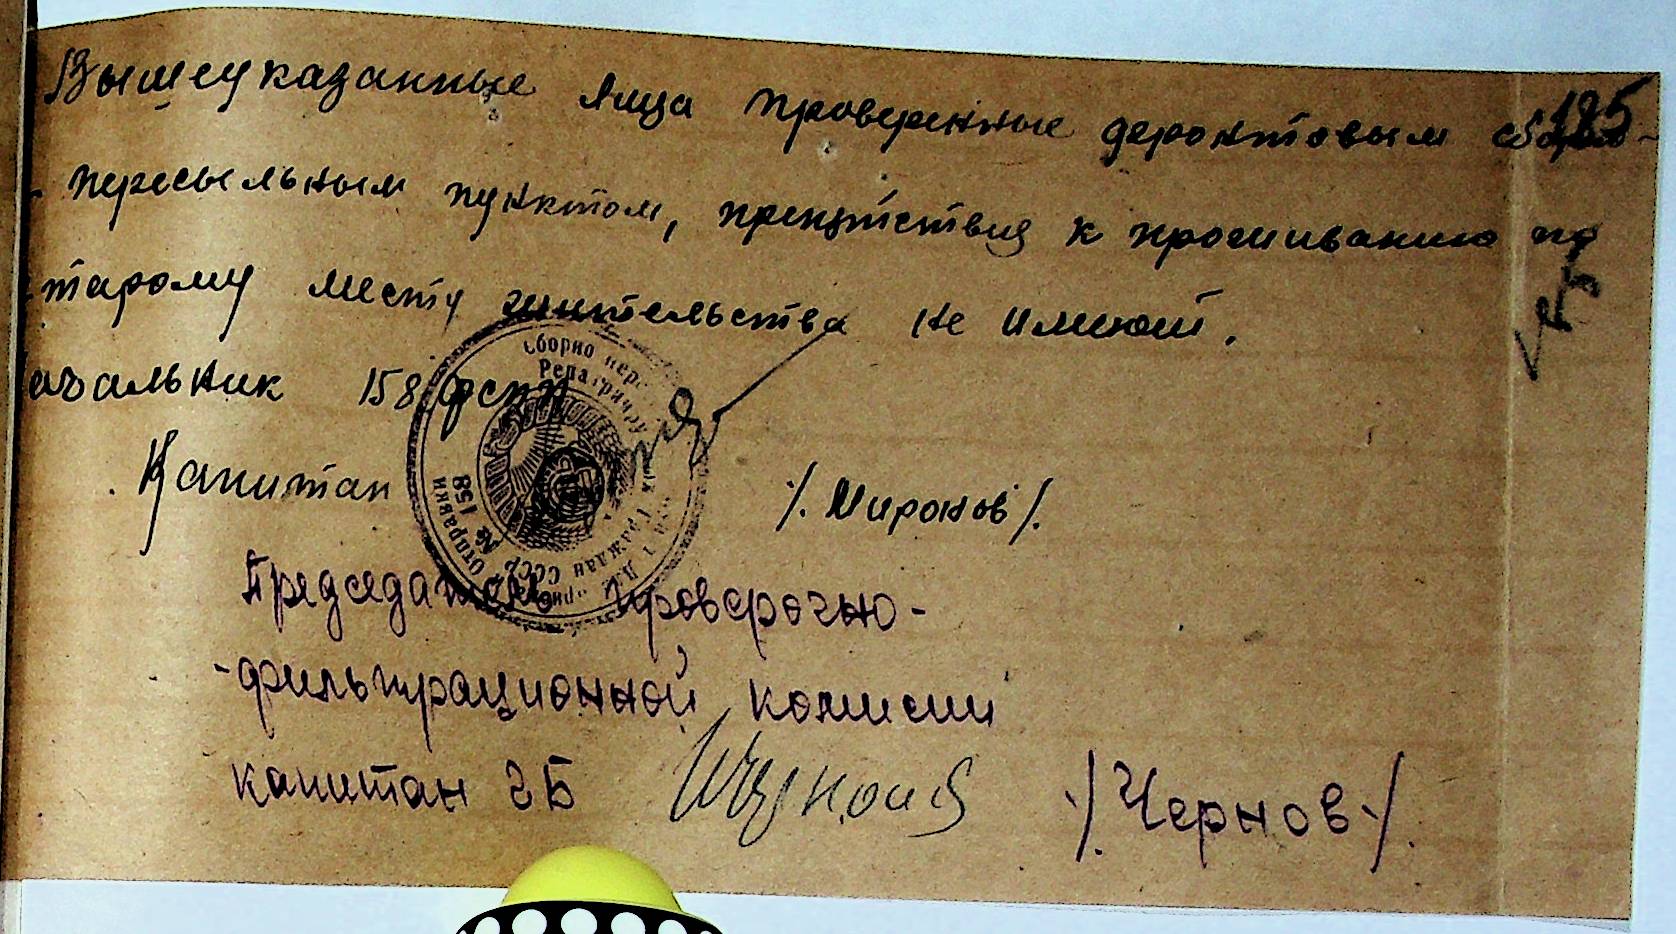 Вышеуказанные лица проверенные деронтовым сборно-
- пересыльным пунктом, препятствия к проживанию по
старому месту жительства не имеют.
ачальник 158 фспп
Капитан /. Миронов /.
Председатель проверочно-
-фильтрационной комисии
капитан ГБ /. Чернов /.
185
Сборно пере
Репатрииру
Граждан СССР
Отправки
№ 158